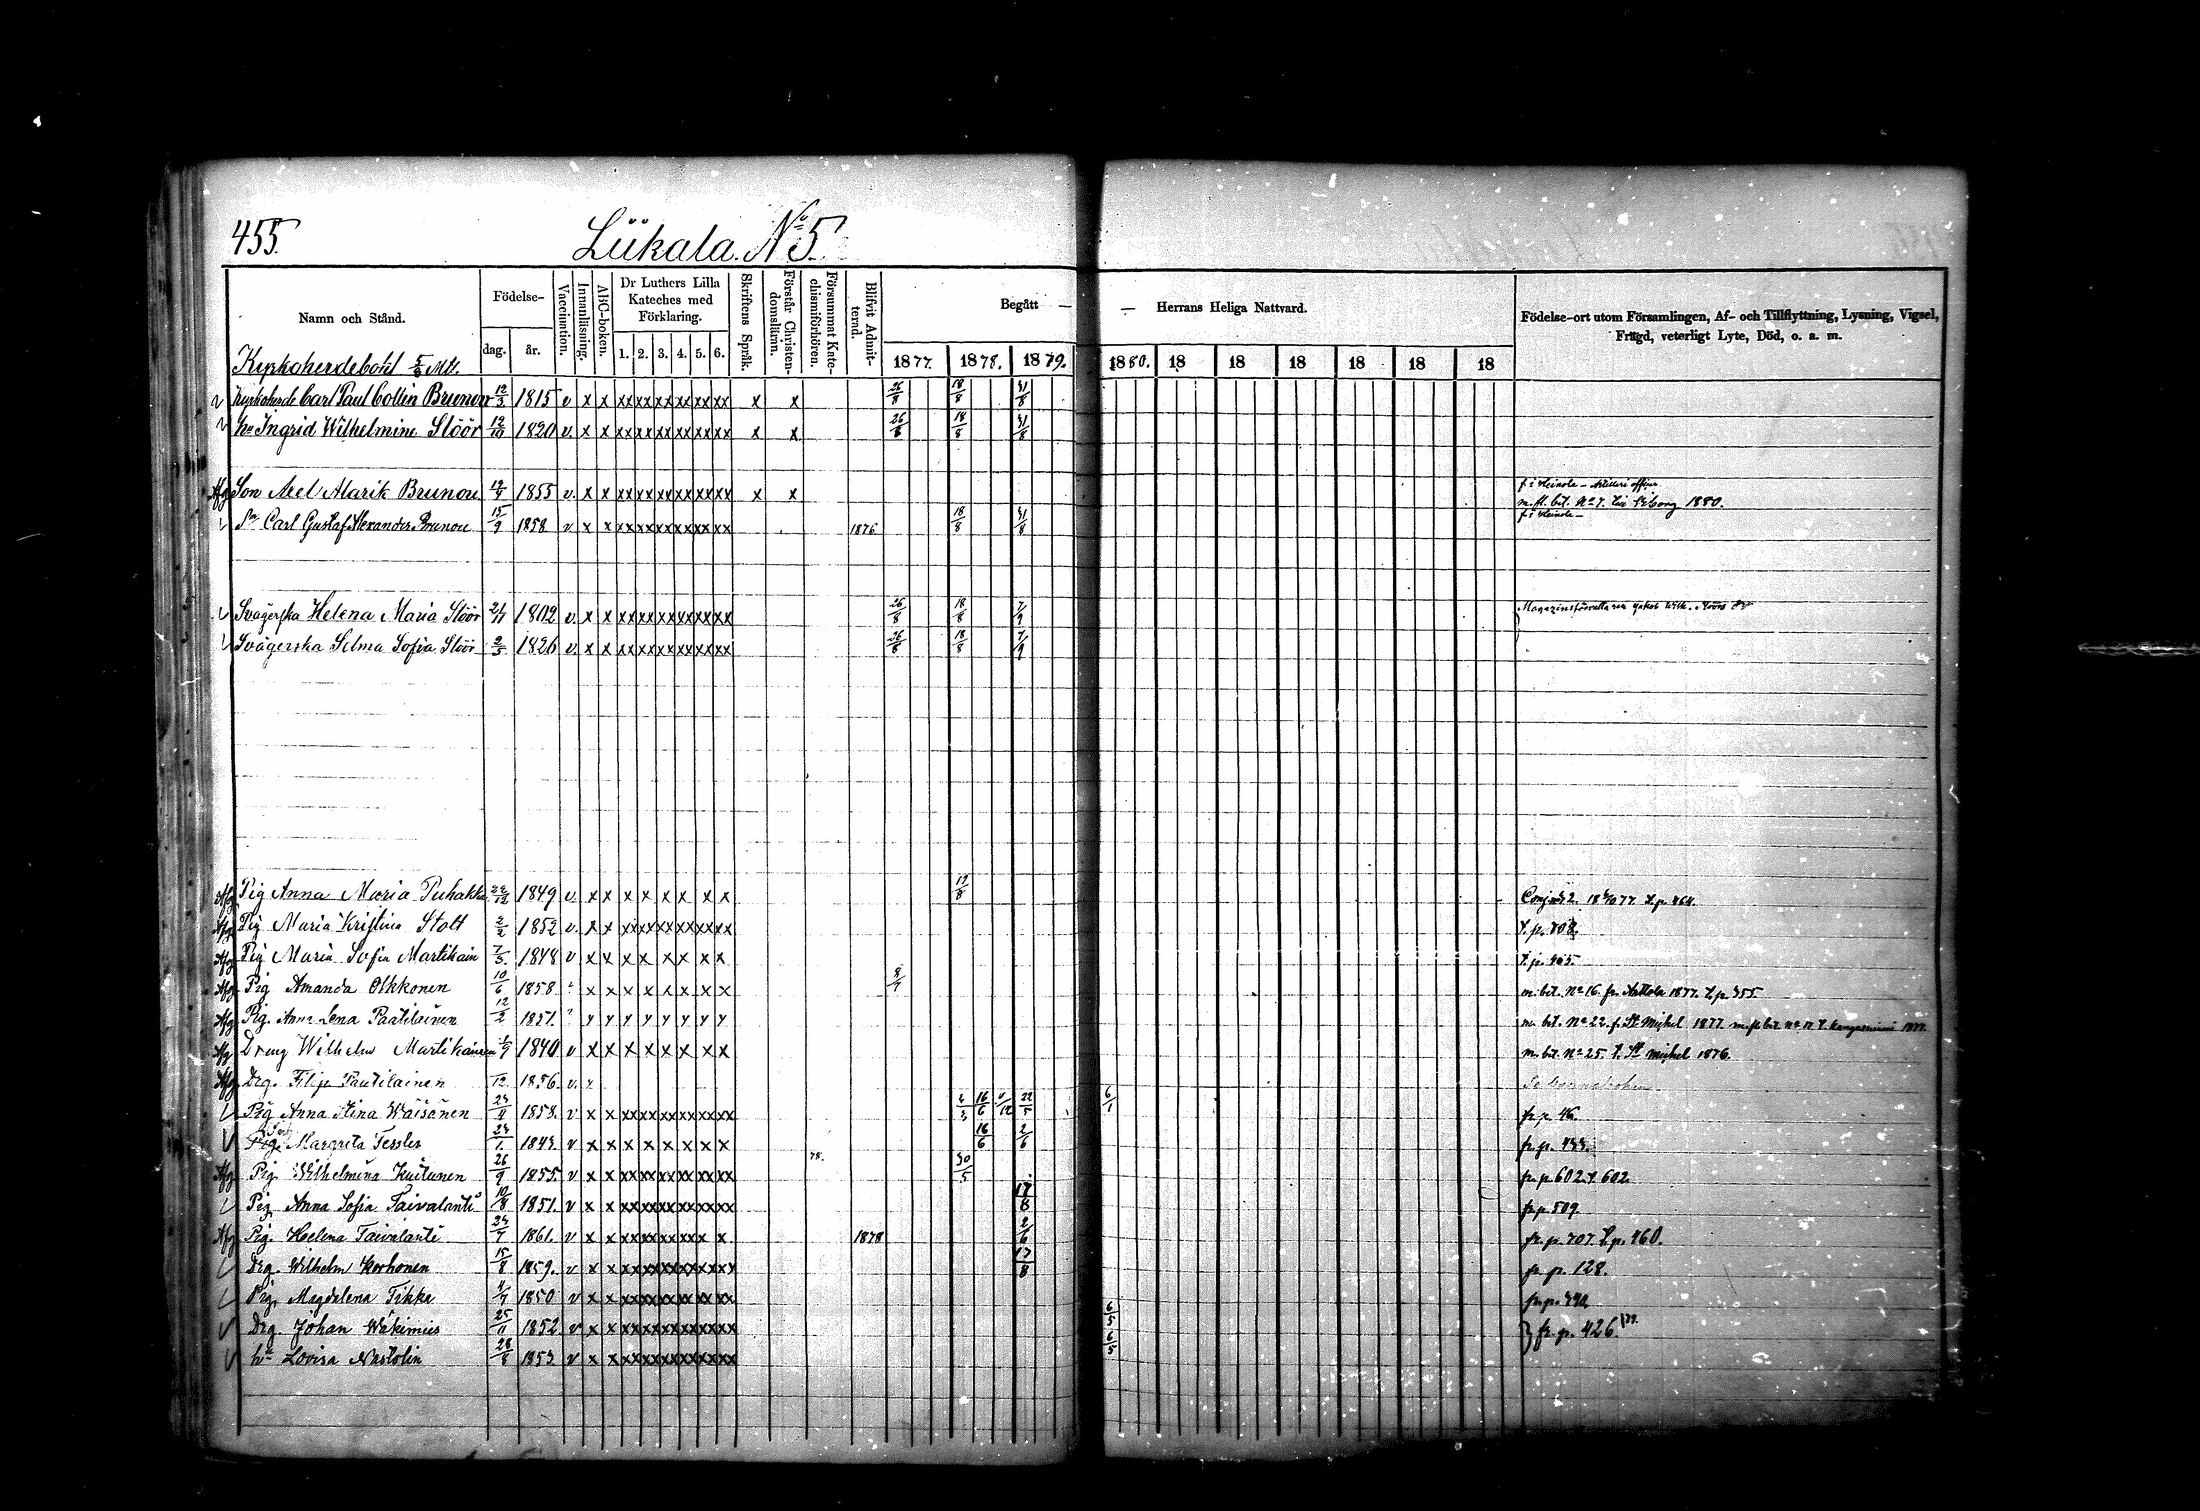 455.
Liikala. No 5.
Namn och Stånd.
Födelse-
dag.
år.
Vaccination.
Innanläsning.
ABC-boken.
Dr Luthers Lilla
Kateches med
Förklaring.
1. 2. 3. 4. 5. 6.
Skriftens Språk.
Förstår Christen-
domslärn.
Försummat Kate-
chismiförhören.
Blifvit Admit-
terad.
Begått —
— Herrans Heliga Nattvard.
1877. 1878. 1879. 1880. 18 18 18 18 18 18
Födelse-ort utom Församlingen, Af- och Tillflyttning, Lysning, Vigsel,
Frägd, veterligt Lyte, Död, o. a. m.
Kyrkoherdebohl 5/8 Mtl.
v Kyrkoherde Carl Paul Collin Brunou 12/3 1815 v x x xx xx xx xx xx xx x x 26/8 18/8 31/8
v hu Ingrid Wilhelmine Stöör 12/10 1820 v. x x xx xx xx xx xx xx x x 26/8 18/8 31/8
Afg Son Axel Alarik Brunou 1855 v. x x xx xx xx xx xx xx x x f. i Heinola
m. fl. bet. No 7. 1880.
Sn Carl Gustaf Alexander Brunou 15/9 1858 v x x xx xx xx xx xx xx 1876 18/8 31/8 f. i Heinola
Svägerska Helena Maria Stöör 1802 v. x x xx xx xx xx xx xx 26/8 18/8 7/9
Svägerska Selma Sofia Stöör 2/5 1826 v. x x xx xx xx xx xx xx 26/8 18/8 7/9
Afg Pig Anna Maria Puhakka 1849 v. x x x x x x x x 464.
Afg Pig Maria Kristina Stolt 2/2 1852 v. x x xx xx xx xx xx xx t. p. 708.
Afg Pig Maria Sofia Martikain 7/5 1848 v x x x x x x x x t. p. 465.
Afg Pig Amanda Olkkonen 10/6 1858 x x x x x x x x m. bet. No 16. fr. 1877. t. p. 355.
Afg Pig. Anna Lena Paatilainen 12/2 1851. m. bet. No 22. f. St Michel 1877 1877.
Afg Dreng Wilhelm Martikainen 1840 v x x x x x x x x m. bet. No 25. f. St Michel 1876.
Afg Drg. Filip Pautilainen 1856. v.
Pig Anna Stina Wäisänen 1853. v x x xx xx xx xx xx xx 16/6 22/5 6/1 fr. p. 46.
Pig. Margreta Tessler 1843. v x x x x x x x x 16/6 2/6 fr. p. 433.
Afg Pig. Wilhelmina Kuitunen 26/9 1855. v x x xx xx xx xx xx xx 78. 30/5 fr. p. 602. t. 602
Pig Anna Sofia Taivalanti 10/8 1851. v x x xx xx xx xx xx xx 17/8 fr. p. 509.
Afg Pig. Helena Taivalanti 1861. v x x xx xx xx xx x x 1878 2/6 fr. p. 707. t. p. 460.
Drg. Wilhelm Korhonen 15/8 1859. v x x xx xx xx xx xx xx 17/8 fr. p. 128.
Pig. Magdalena Tikka 1850 v x x xx xx xx xx xx xx
Drg. Johan Wäkimies 25/11 1852 v x x xx xx xx xx xx xx 6/5 } fr. p. 426.
hu Lovisa 28/8 1853 v x x xx xx xx xx xx xx 6/5